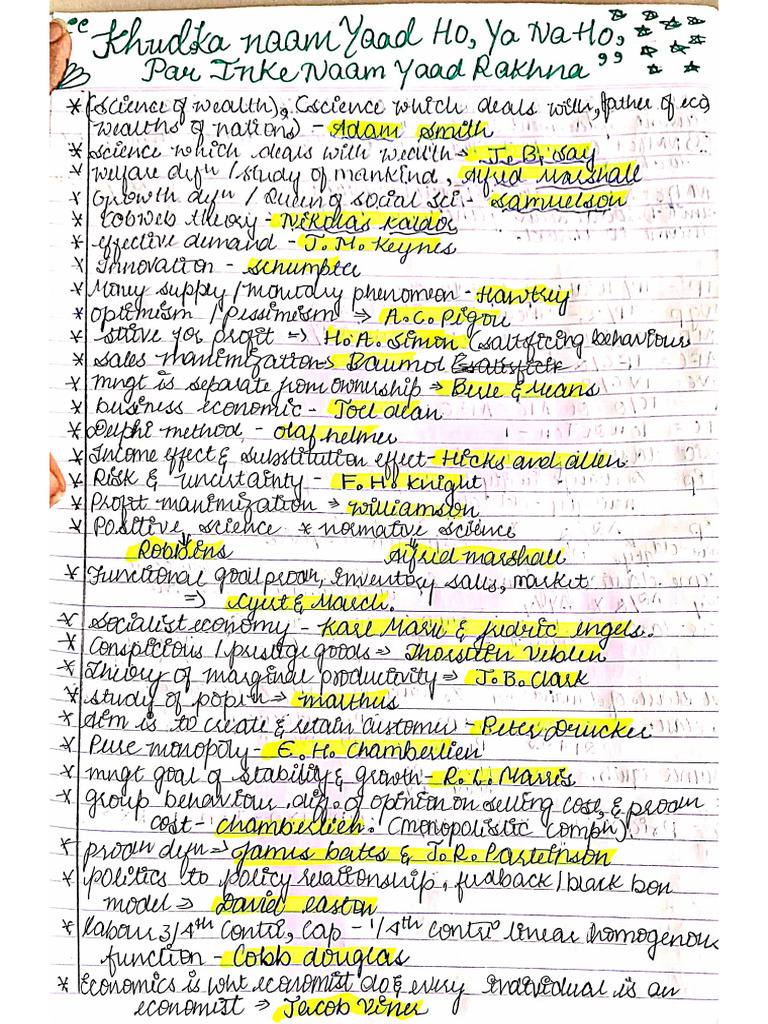 "Khudka naam Yaad Ho, Ya Na Ho,
Par Inke Naam Yaad Rakhna"
* (science of wealth), (science which deals with, father of eco,
wealths of nations) - Adam Smith
* science which deals with wealth → J. B. Say
* welfare defn / study of mankind, Alfred Marshall
* Growth defn / Queen of social sci - Samuelson
* Cobweb theory - Nikolas Kaldor
* effective demand - J. M. Keynes
* Innovation - schumpter
* Money supply / monetary phenomeon - Hawtrey
* optimism / pessimism ⇒ A. C. Pigou
* strive for profit ⇒ H. A. Simon (satisficing behaviour)
* sales maximization → Baumol
* mngt is separate from ownership → Berle & Means
* business economic - Joel dean
* Delphi method - olaf helmer
* Income effect & substitution effect - Hicks and allen
* Risk & uncertainty - F. H. Knight
* Profit maximization ⇒ williamson
* Positive science * normative science
Robbins Alfred marshall
* Functional goal prodn, inventory sales, market
⇒ Cyert & March.
* Socialist economy - Karl Marx & fredric engels.
* Conspicious / prestige goods ⇒ Thorstien Veblen
* Theory of marginal productivity ⇒ J. B. Clark
* study of popn ⇒ malthus
* Aim is to create & retain customer - Peter Drucker
* Pure monopoly - E. H. Chamberlien
* mngt goal of stability & growth - R. L. Marris
* group behaviour, diff. of opinion on selling cost, & prodn
cost - chamberlien. (monopolistic compn).
* prodn defn ⇒ James bates & J. R. Parkinson
* politics to policy relationship, feedback / black box
model ⇒ David easton
* Labour 3/4th Contri, Cap - 1/4th Contri linear homogenous
function - Cobb douglas
* Economics is wht economist do & every individual is an
economist ⇒ Jacob Viner